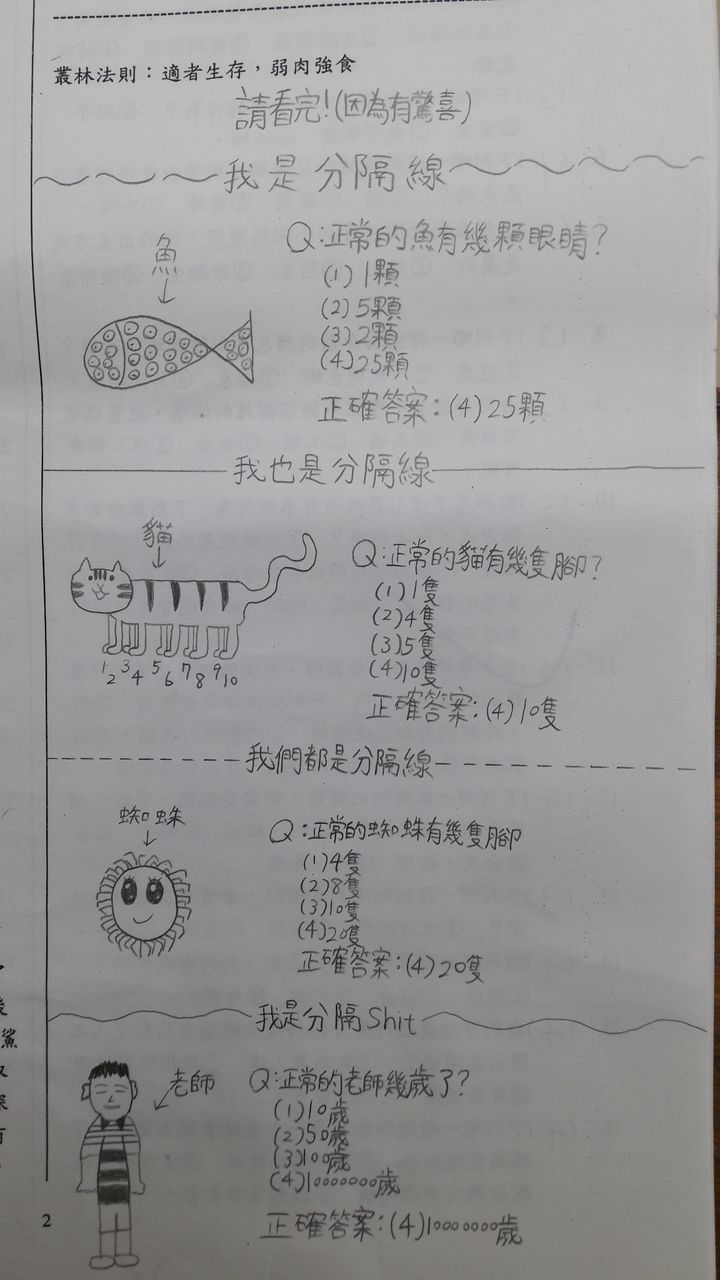 叢林法則：適者生存，弱肉強食
請看完!(因為有驚喜)
我是分隔線
魚
Q:正常的魚有幾顆眼睛?
(1)1顆
(2)5顆
(3)2顆
(4)25顆
正確答案:(4)25顆
我也是分隔線
貓
1 2 3 4 5 6 7 8 9 10
Q:正常的貓有幾隻腳?
(1)1隻
(2)4隻
(3)5隻
(4)10隻
正確答案:(4)10隻
我們都是分隔線
蜘蛛
Q:正常的蜘蛛有幾隻腳
(1)4隻
(2)8隻
(3)10隻
(4)20隻
正確答案:(4)20隻
我是分隔Shit
老師
Q:正常的老師幾歲了?
(1)10歲
(2)50歲
(3)100歲
(4)10000000歲
正確答案:(4)10000000歲
2